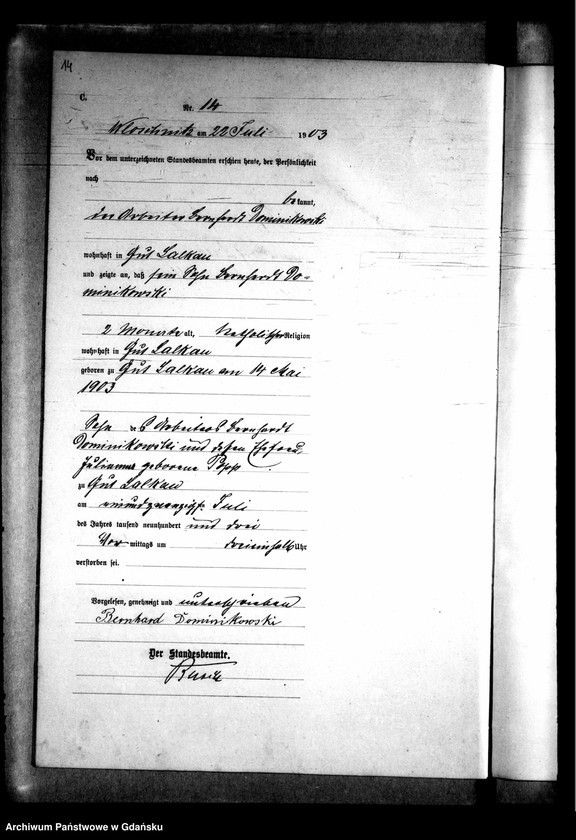 14
C.
Nr. 14
am 22 Juli 1903
Vor dem unterzeichneten Standesbeamten erschien heute, der Persönlichkeit
nach
bekannt,
der Arbeiter Bernhardt Dominikowski
wohnhaft in Gut Lalkau
und zeigte an, daß sein Sohn Bernhardt Do-
minikowski
2 Monate alt, katholischer Religion
wohnhaft in Gut Lalkau
geboren zu Gut Lalkau am 14 Mai
1903
Sohn des Arbeiters Bernhardt
Dominikowski und dessen Ehefrau
Julianna geborene
zu Gut Lalkau
am einundzwanzigst. Juli
des Jahres tausend neunhundert und drei
Vormittags um dreieinhalb Uhr
verstorben sei.
Vorgelesen, genehmigt und unterschrieben
Bernhard Dominikowski
Der Standesbeamte.
Archiwum Państwowe w Gdańsku